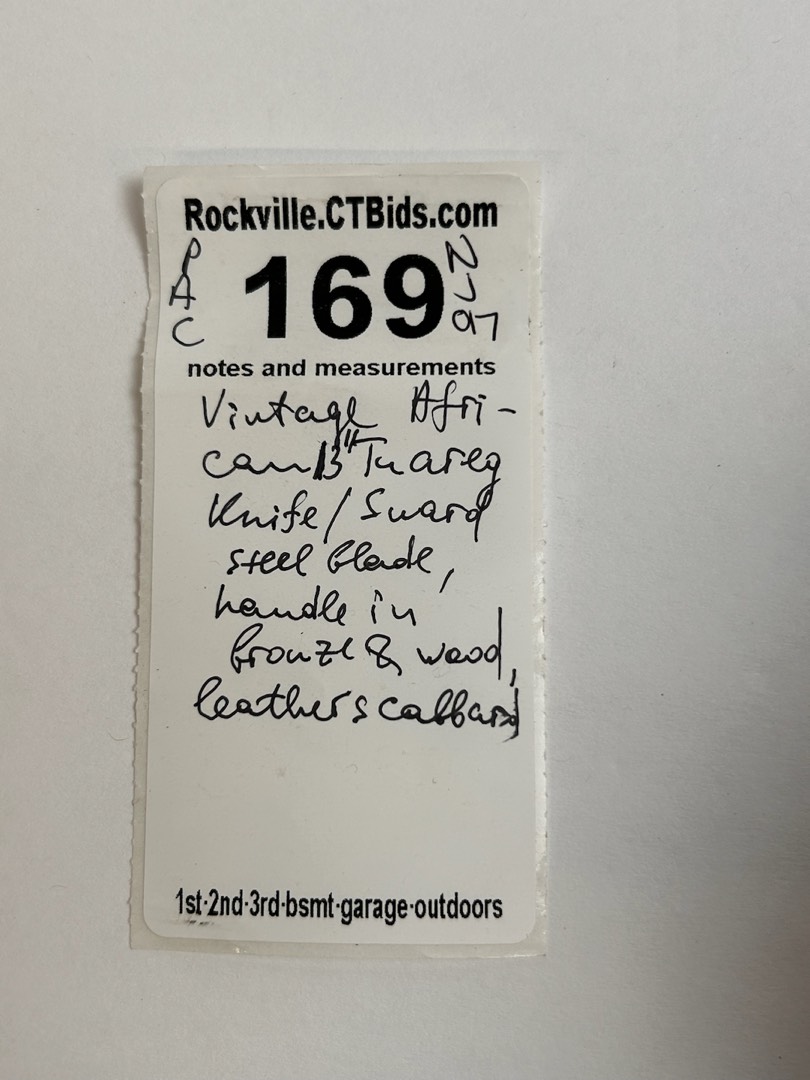 Rockville.CTBids.com
PAC 169
notes and measurements
Vintage Afri-
can 13" Tuareg
Knife/Sward
steel blade,
handle in
bronze & wood,
leather scabbard
1st·2nd·3rd·bsmt·garage·outdoors